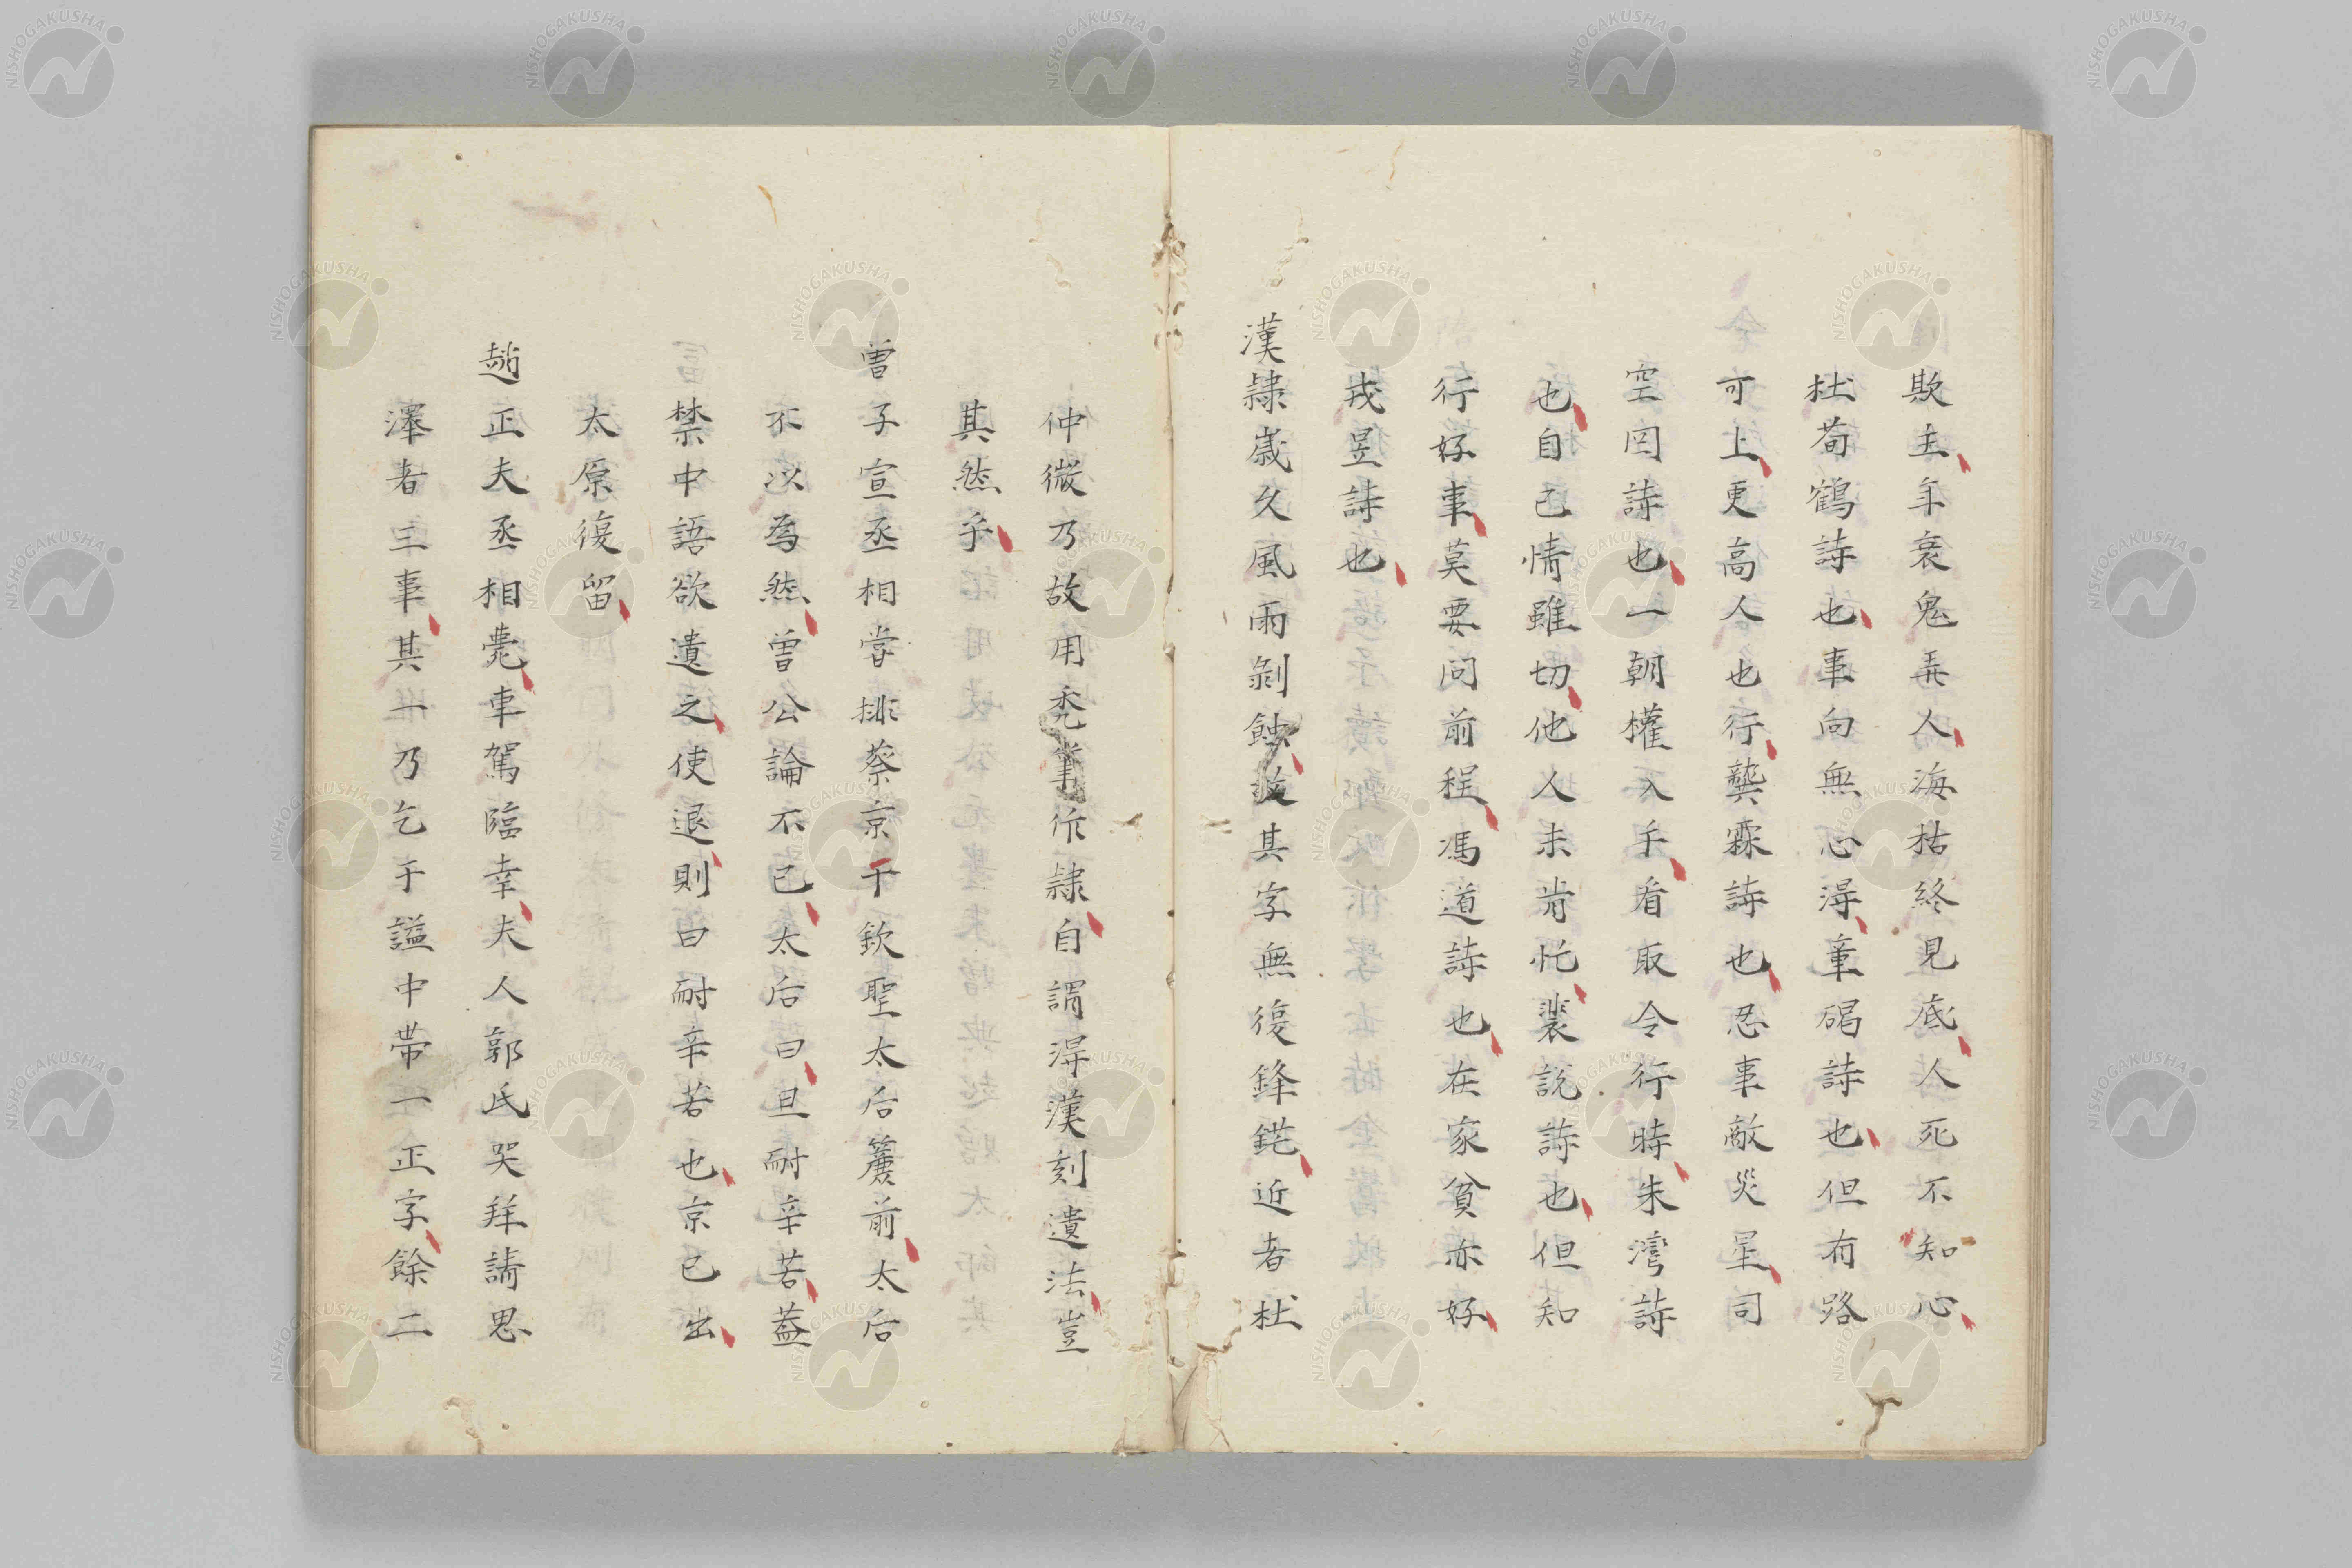 欺主年衰鬼弄人海枯終見底人死不知心
杜荀鶴詩也事向無心淂章碣詩也但有路
可上更高人也行龔霖詩也忍事敵災星司
空圖詩也一朝權入手看取令行時朱灣詩
也自己情雖切他人未肯忙裴說詩也但知
行好事莫要问前程馮道詩也在家貧亦好
戎昱詩也
漢隷歲久風雨剝蝕故其字無復鋒鋩近者杜
仲微乃故用禿筆作隷自謂淂漢刻遺法豈
其然乎
曽子宣丞相甞排蔡京于欽聖太后簾前太后
不以為然曽公論不已太后曰且耐辛苦葢
禁中語欲遣之使退則曰耐辛苦也京已出
太原復留
趙正夫丞相薨車駕臨幸夫人郭氏哭拜請恩
澤者三事其一乃乞于謚中帯一正字餘二
NISHOGAKUSHA